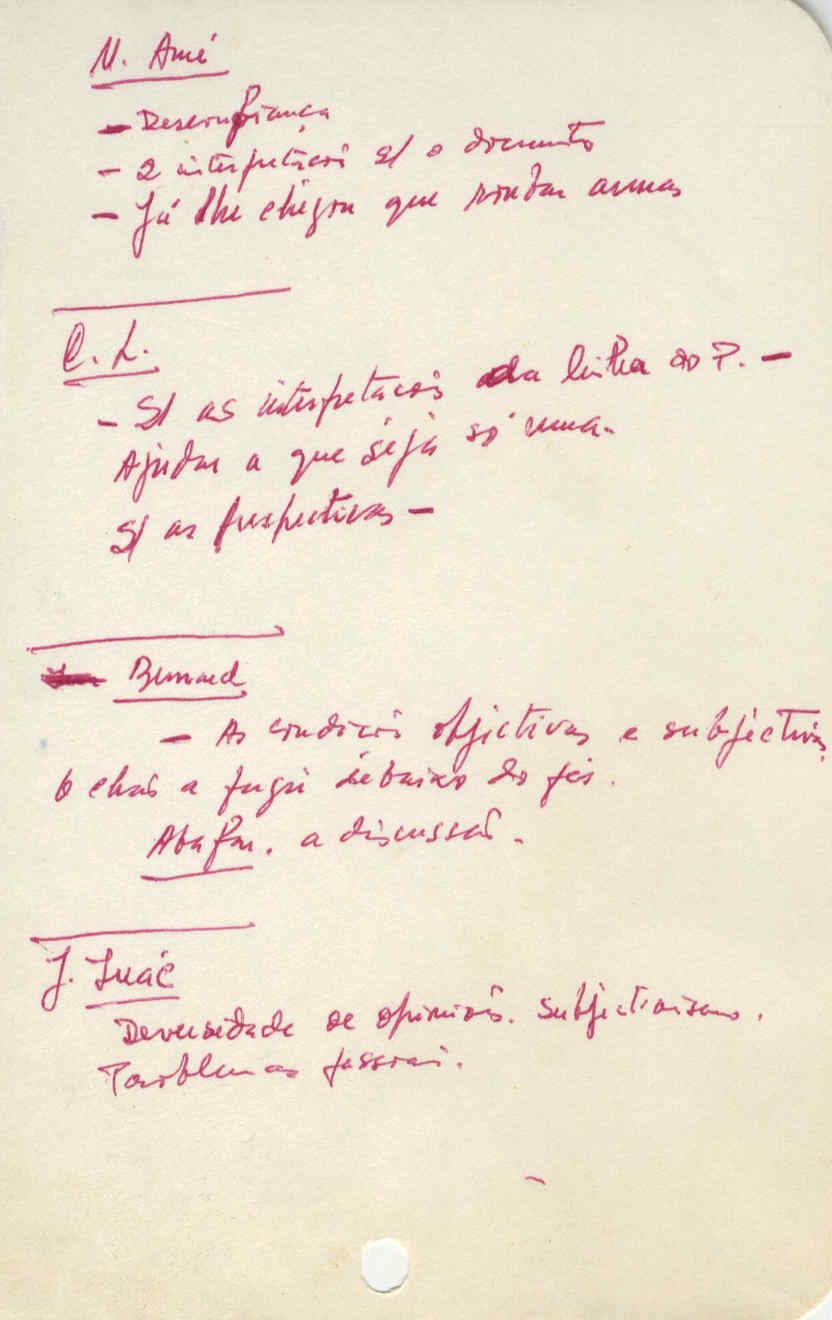 M. Amé
- Desconfiança
- 2 interpretacoi s/ o documto
- Já lhe chegou que armas
C. L.
- S/ as interpretacois da linha do P. -
Ajudar a que seja só uma.
S/ as perspectivas -
Bernard
- As condicoi objectivas e subjectivas
o chao a fugir debaixo do pés.
Abafar. a discussaõ.
J. Inác
Deversidade de opinioẽs. Subjectivismo.
Problemas pessoai.